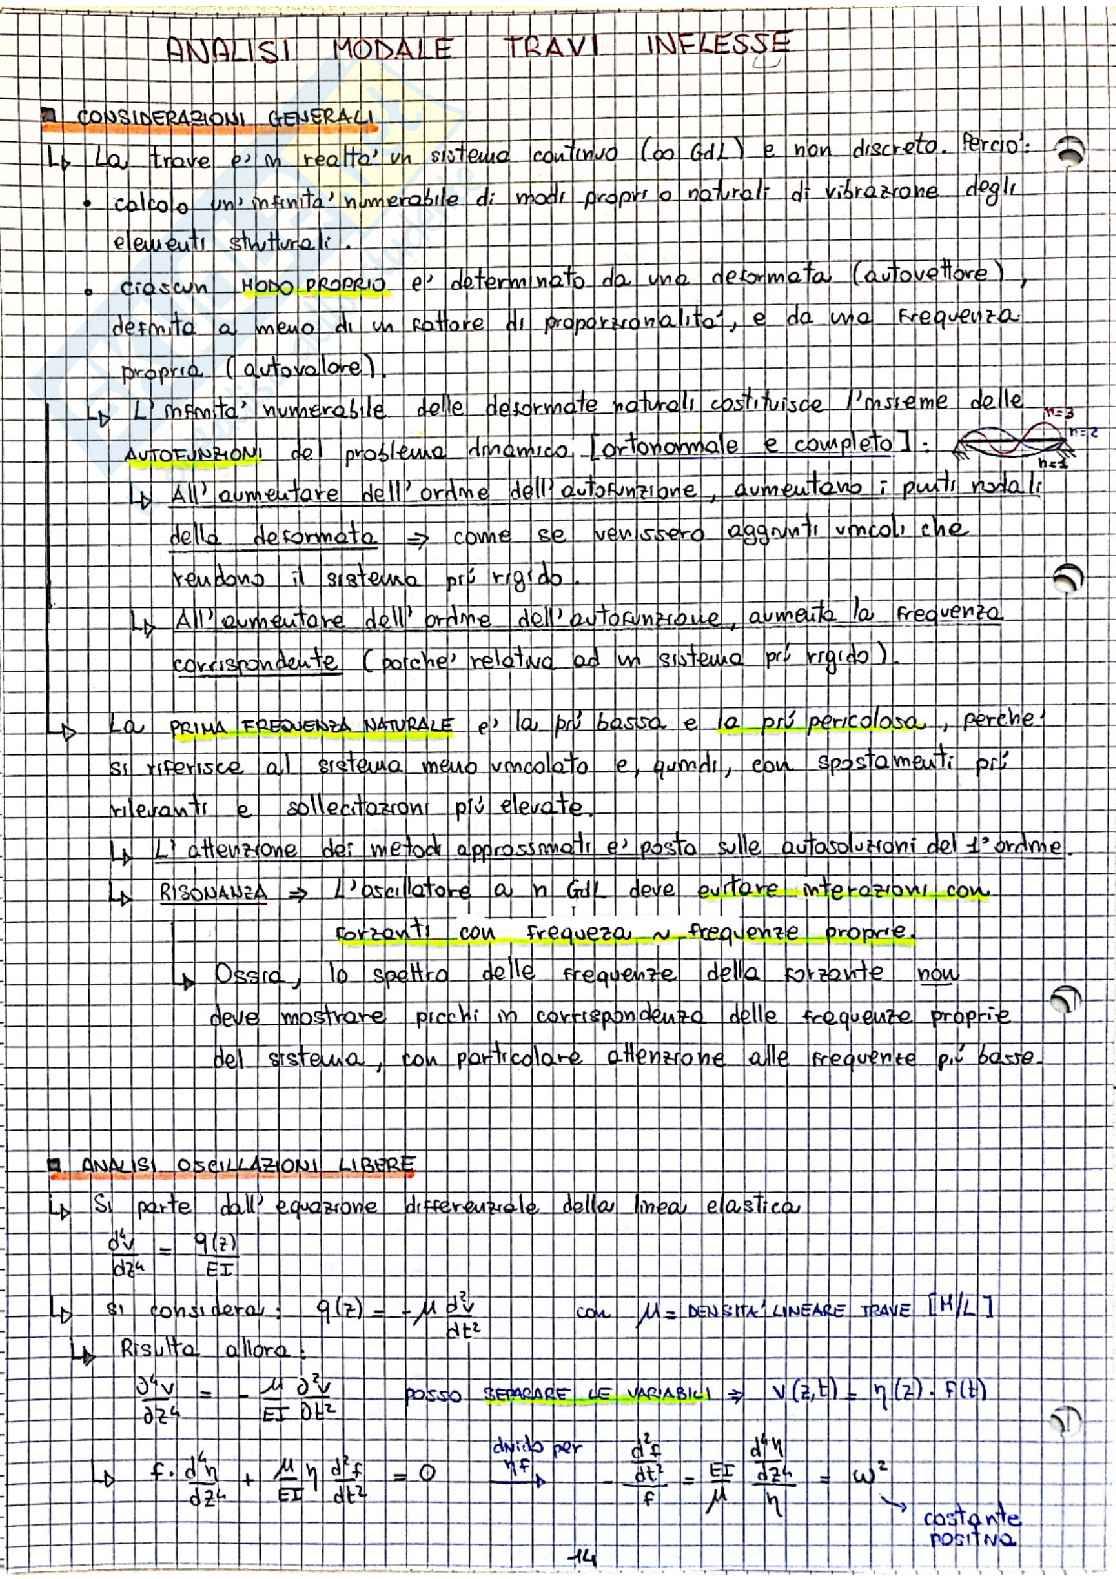 ANALISI MODALE TRAVI INFLESSE
CONSIDERAZIONI GENERALI
↳ La trave e' in realta' un sistema continuo (∞ GdL) e non discreto. Percio':
• calcolo un'infinita' numerabile di modi propri o naturali di vibrazione degli
elementi strutturali.
• ciascun MODO PROPRIO e' determinato da una deformata (autovettore),
definita a meno di un fattore di proporzionalita', e da una frequenza
propria (autovalore).
↳ L'infinita' numerabile delle deformate naturali costituisce l'insieme delle
AUTOFUNZIONI del problema dinamico [ortonormale e completo]:
n=3
n=2
n=1
↳ All'aumentare dell'ordine dell'autofunzione, aumentano i punti nodali
della deformata ⇒ come se venissero aggiunti vincoli che
rendono il sistema piú rigido.
↳ All'aumentare dell'ordine dell'autofunzione, aumenta la frequenza
corrispondente (poiche' relativa ad un sistema piú rigido).
↳ La PRIMA FREQUENZA NATURALE e' la piú bassa e la piú pericolosa, perche'
si riferisce al sistema meno vincolato e, quindi, con spostamenti piú
rilevanti e sollecitazioni piú elevate.
↳ L'attenzione dei metodi approssimati e' posta sulle autosoluzioni del 1° ordine.
↳ RISONANZA ⇒ L'oscillatore a n GdL deve evitare interazioni con
forzanti con frequeza ~ frequenze proprie.
↳ Ossia, lo spettro delle frequenze della forzante non
deve mostrare picchi in corrispondenza delle frequenze proprie
del sistema, con particolare attenzione alle frequenze piú basse.
ANALISI OSCILLAZIONI LIBERE
↳ Si parte dall'equazione differenziale della linea elastica
d⁴v/dz⁴ = q(z)/EI
↳ si considera: q(z) = -μ d²v/dt² con μ = DENSITA' LINEARE TRAVE [M/L]
↳ Risulta allora:
∂⁴v/∂z⁴ = - μ/EI ∂²v/∂t² posso SEPARARE LE VARIABILI ⇒ v(z,t) = η(z) · f(t)
↳ f · d⁴η/dz⁴ + μ/EI η d²f/dt² = 0 divido per ηf → - (d²f/dt²)/f = EI/μ (d⁴η/dz⁴)/η = ω²
→ costante
positiva
14